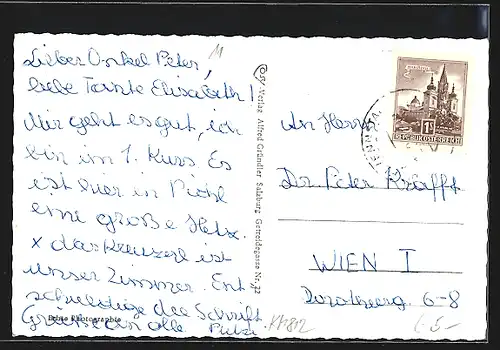 Lieber Onkel Peter,
liebe Tante Elisabeth!
Mir geht es gut, ich
bin im 1. Kurs Es
ist hier in
eine große Hetz.
x das Kreuzerl ist
unser Zimmer. Ent-
schuldige die Schrift
Grüße an alle Putzi
Echte Photographie
Verlag Alfred Gründler Salzburg Getreidegasse Nr. 32
REPUBLIK ÖSTERREICH
An Herrn
Dr. Peter Krafft
WIEN I
Dorotheerg. 6-8